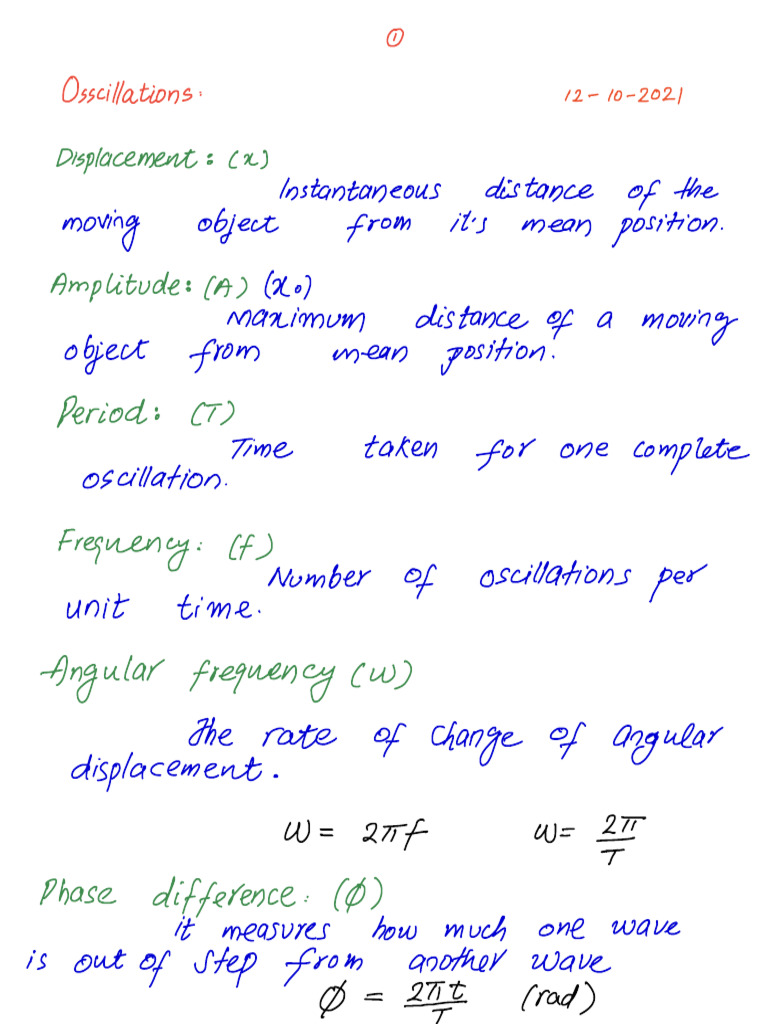 ①
Osscillations:
12-10-2021
Displacement: (x)
Instantaneous distance of the
moving object from it's mean position.
Amplitude: (A) (x₀)
Maximum distance of a moving
object from mean position.
Period: (T)
Time taken for one complete
oscillation.
Frequency: (f)
Number of oscillations per
unit time.
Angular frequency (ω)
The rate of change of angular
displacement.
ω = 2πf ω = 2π/T
Phase difference: (φ)
it measures how much one wave
is out of step from another wave
φ = 2πt/T (rad)